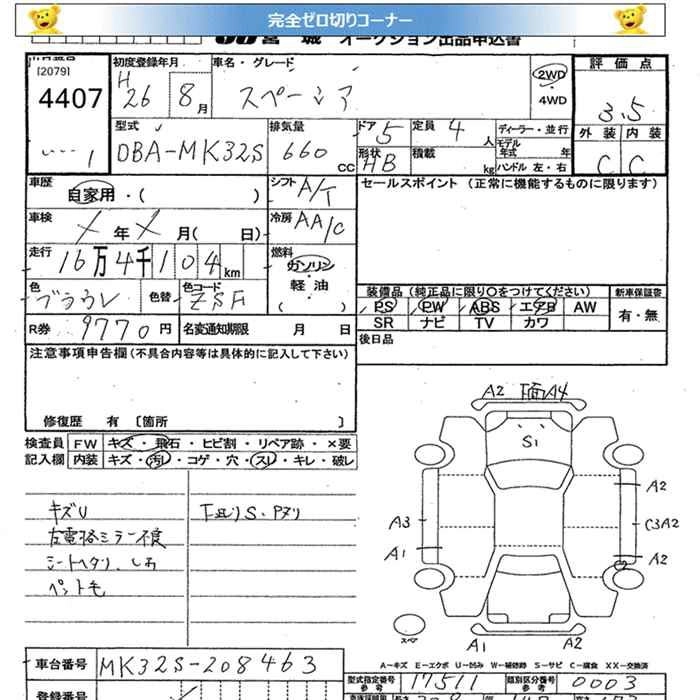 完全ゼロ切りコーナー
宮城 オークション出品申込書
[2079]
4407
初度登録年月
H 26 8月
車名・グレード
スペーシア
2WD
・
4WD
評価点
3.5
外装 内装
C C
型式
DBA-MK32S
排気量
660 CC
ドア 5
定員 4 人
形状 HB
積載 kg
ディーラー・並行
モデル年式 年
ハンドル 左・右
車歴
自家用・( )
シフト A/T
セールスポイント (正常に機能するものに限ります)
車検
年 月( 日)
冷房 AA/C
走行
16万4千104km
燃料
ガソリン
・
軽油
( )
色
ブラウン
色替
色コード
ZSF
装備品 (純正品に限り○をつけてください)
新車保証書
PS PW ABS エアB AW
SR ナビ TV カワ
有・無
R券 9770円
名変通知期限 月 日
後日品
注意事項申告欄(不具合内容等は具体的に記入して下さい)
修復歴 有 〔箇所 〕
検査員 FW キズ・飛石・ヒビ割・リペア跡・×要
記入欄 内装 キズ・汚れ・コゲ・穴・スレ・キレ・破レ
キズU
左電格ミラー不良
シートヘタリ、しわ
ペット毛
下廻りS・Pヌリ
A2 下面A4
S1
A2
A3
C3A2
A1
A2
C2
スペア
A1
A2
A-キズ E-エクボ U-凹み W-補修跡 S-サビ C-腐食 XX-交換済
車台番号 MK32S-208463
型式指定番号
参考
17511
類別区分番号
参考
0003